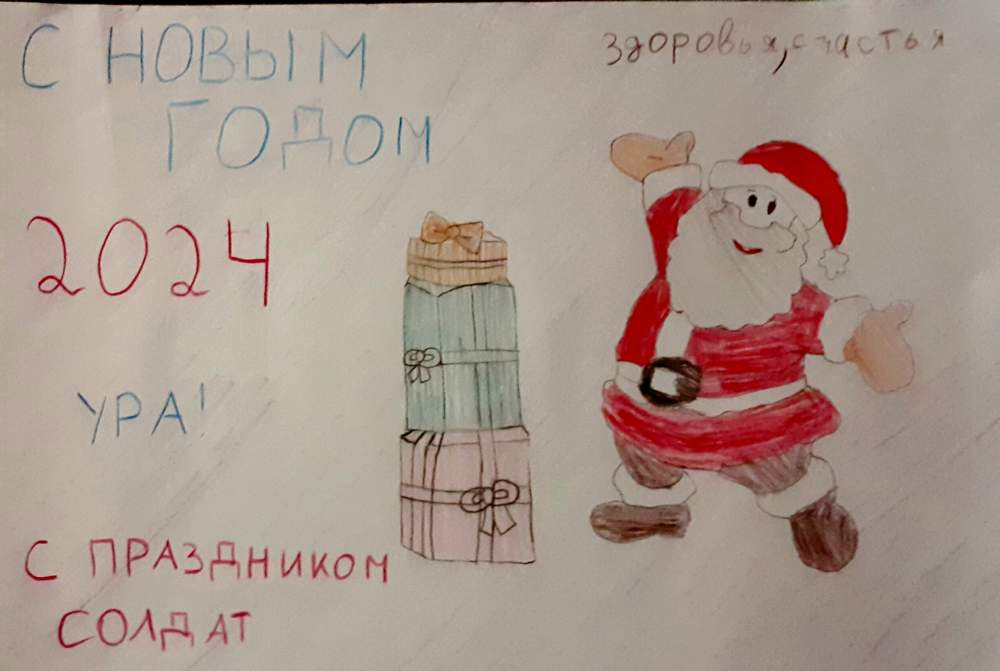 С НОВЫМ
ГОДОМ
здоровья,счастья
2024
УРА!
С ПРАЗДНИКОМ
СОЛДАТ